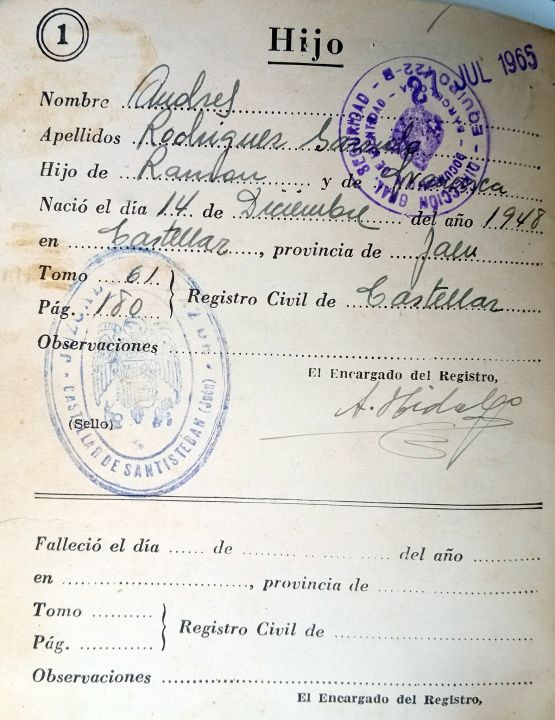 1
Hijo
JUL 1965
DIRECCIÓN GRAL SEGURIDAD - B
EQUIPO
Nombre Andres
Apellidos Rodriguez Garrido
Hijo de Ramon y de Francisca
Nació el día 14 de Diciembre del año 1948
en Castellar, provincia de Jaen
Tomo 61
Pág. 180
Registro Civil de Castellar
Observaciones
El Encargado del Registro,
A. Hidalgo
(Sello)
CASTELLAR DE SANTISTEBAN (Jaén)
Falleció el día de del año
en , provincia de
Tomo
Pág.
Registro Civil de
Observaciones
El Encargado del Registro,